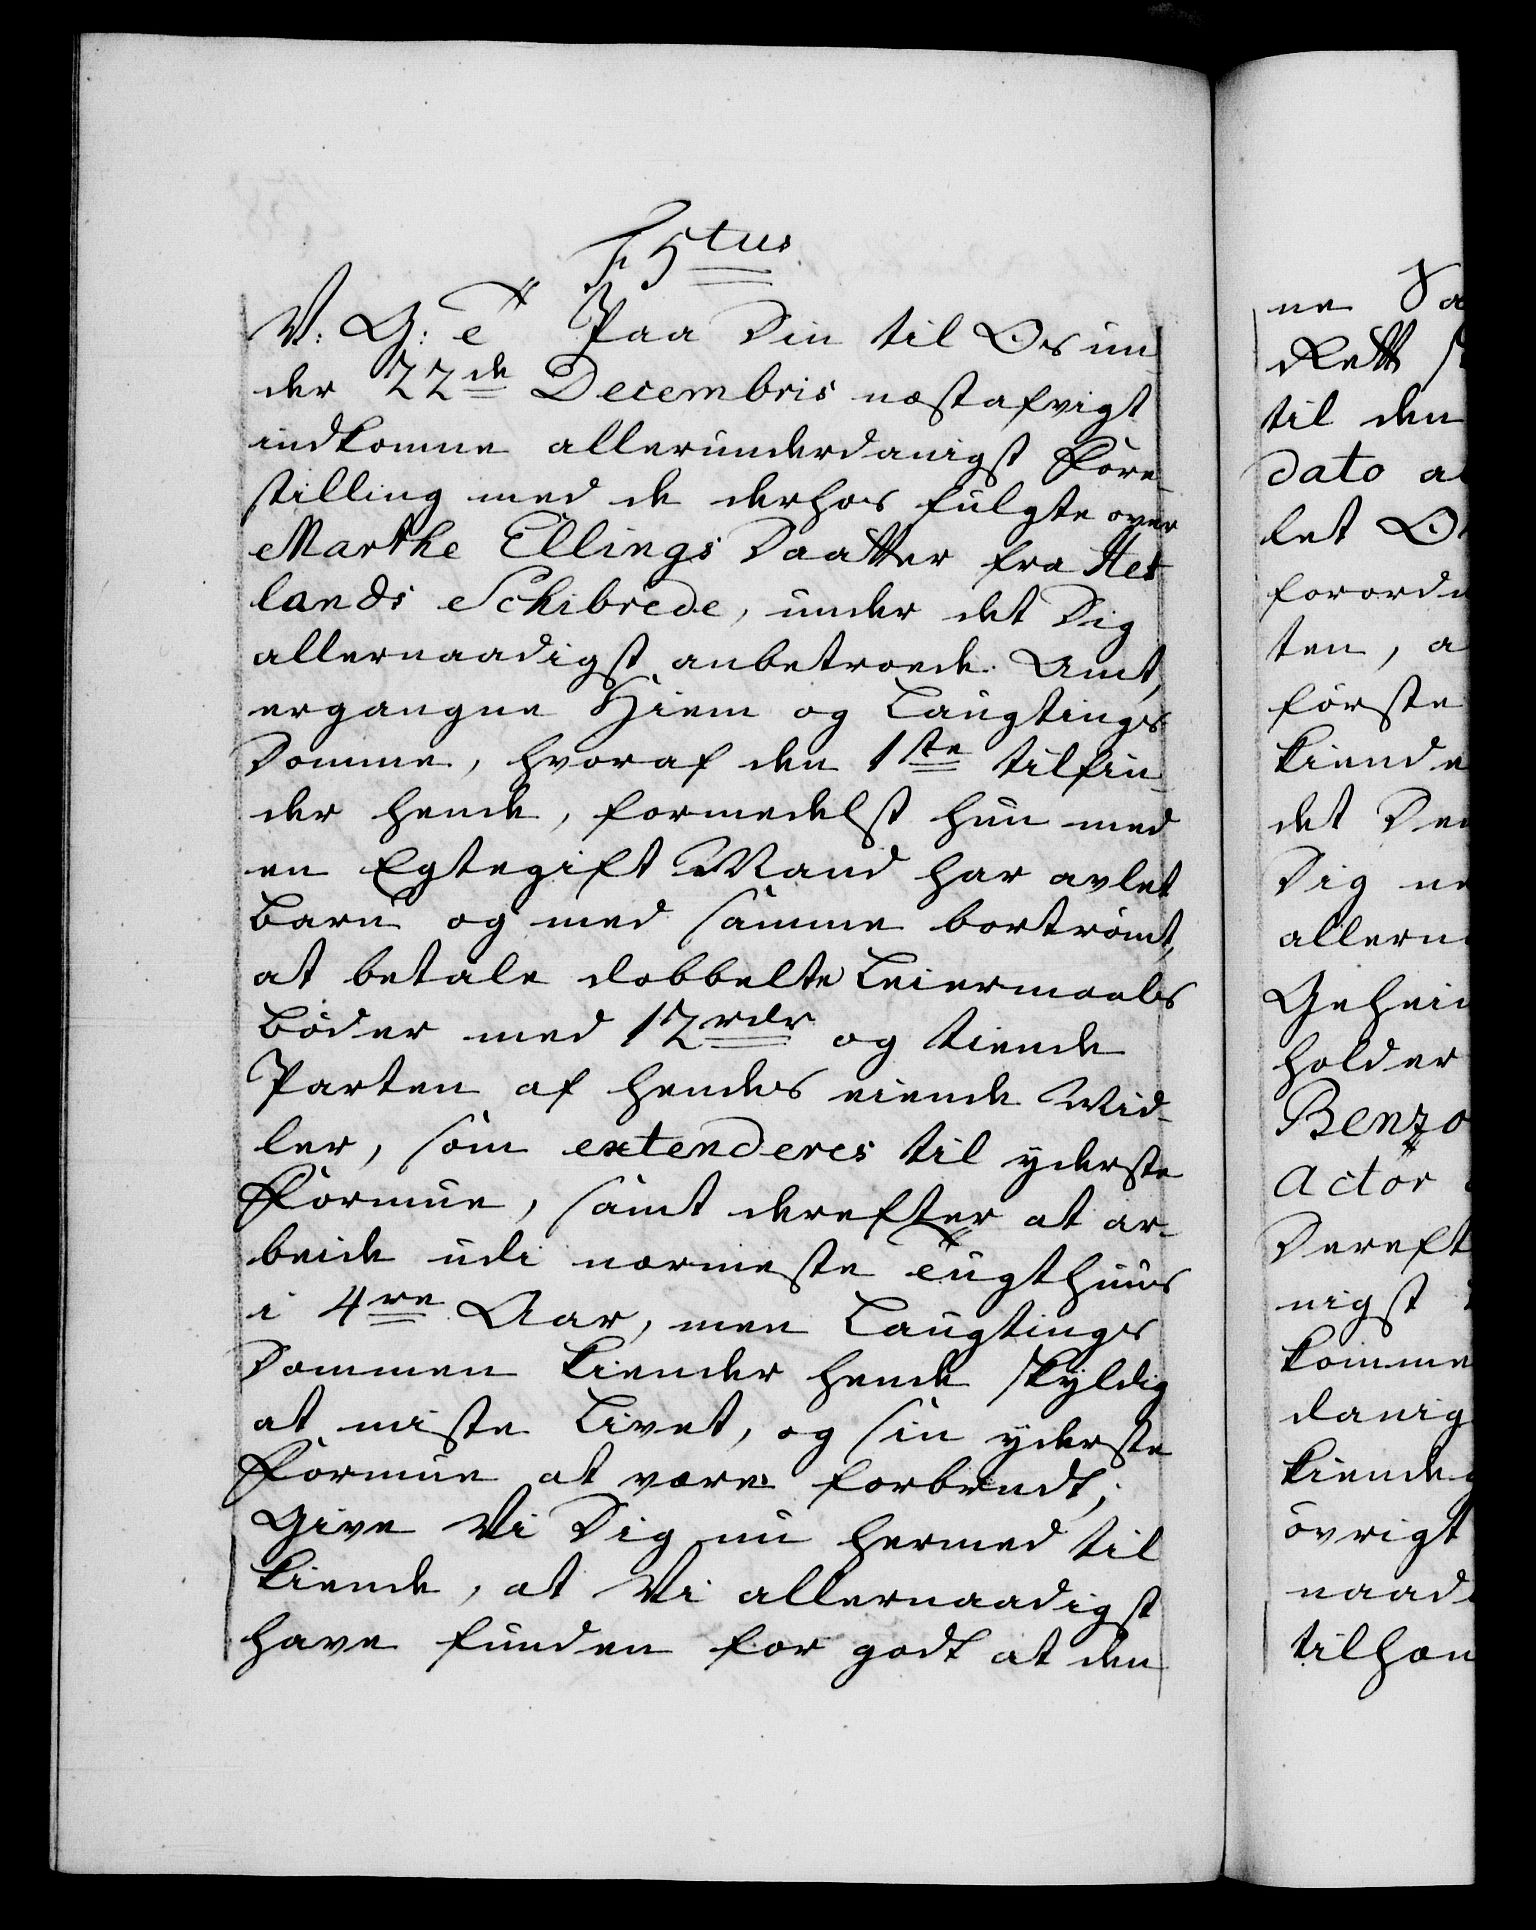 F. 5tus
V: G: e Paa Din til Os un
der 22de Decembris næstafvigt
indkomne allerunderdanigst Fore-
stilling med de derhos fulgte over
Marthe Ellings Daatter fra Het
lands Schibrede, under det Dig
allernaadigst anbetroede Amt,
ergangne Hiem og Laugtings
Domme, hvoraf den 1ste tilfin-
der hende, formedelst hun med
en Egtegift Mand har avlet
Barn og med samme bortrømt,
at betale dobbelte Leiermaals
Bøder med 12 rdr og tiende
Parten af hendes eiende Mid-
ler, som extenderes til yderste
Formue, samt derefter at ar-
beide udi nærmeste Tugthuus
i 4re Aar, men Laugtings
Dommen kiender hende skyldig
at miste Livet, og sin yderste
Formue at være forbrudt;
Give Vi Dig nu hermed til
kiende, at Vi allernaadigst
have funden for godt at den
ne Sa
Rett
til den
dato a
let
forord
ten, a
første
kiende
det
Dig
allern
Geheim
holder
Benzo
Actor
Dereft
nigst
komme
danig
kiende
øvrigt
naad
tilhan